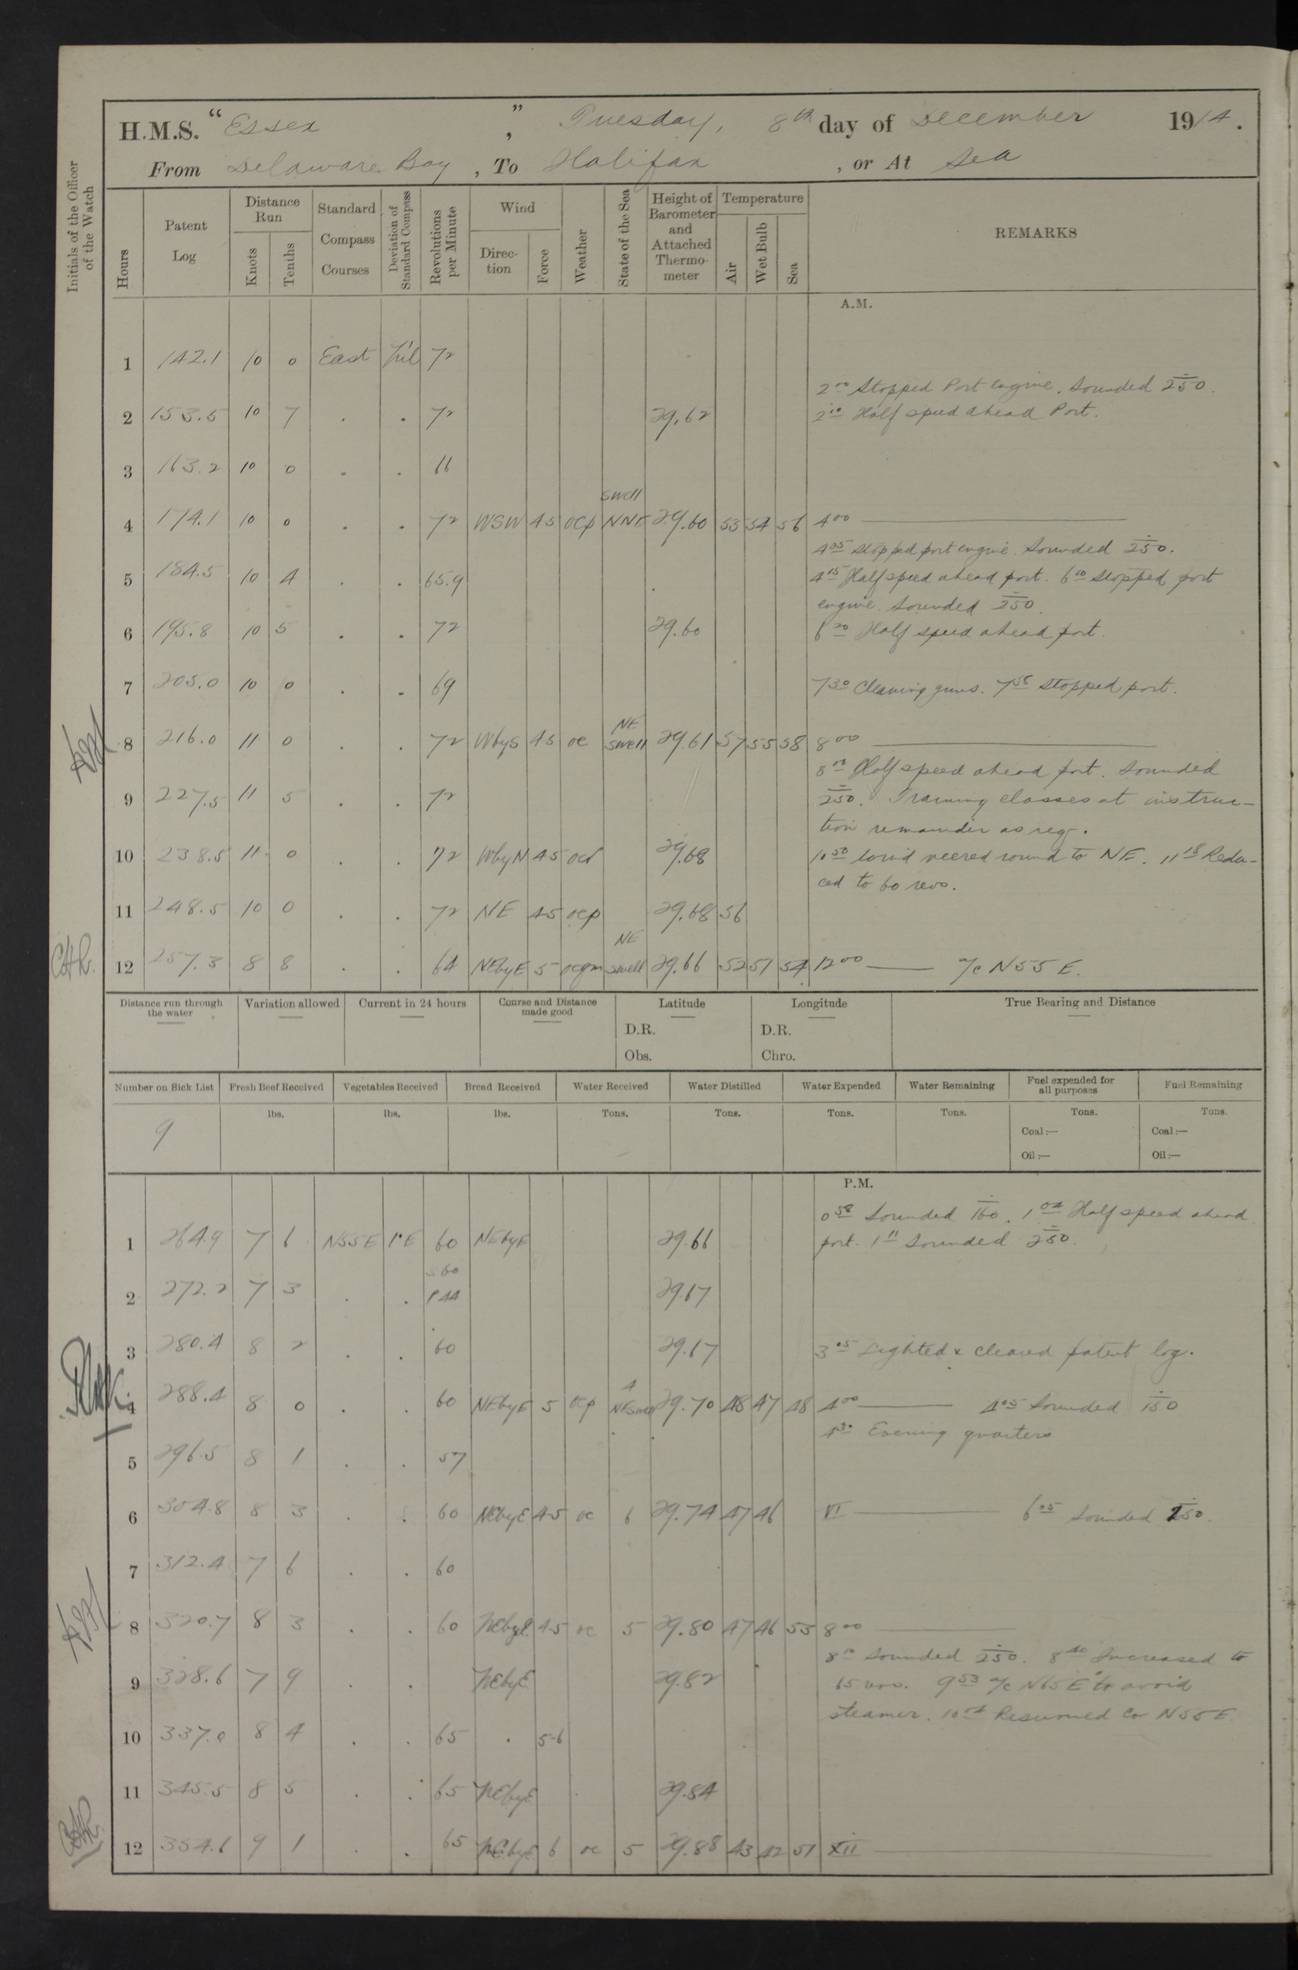 H.M.S. "Essex", Tuesday, 8th day of December 1914.
From Delaware Bay, To Halifax, or At Sea
Initials of the Officer of the Watch
Hours
Patent Log
Distance Run
Knots
Tenths
Standard Compass Courses
Deviation of Standard Compass
Revolutions per Minute
Wind
Direction
Force
Weather
State of the Sea
Height of Barometer and Attached Thermometer
Temperature
Air
Wet Bulb
Sea
REMARKS
A.M.
1 142.1 10 0 East Nil 72
2 00 Stopped Port engine. Sounded 250.
2 153.5 10 7 . . 72 29.62 2 10 Half speed ahead Port.
3 163.2 10 0 . . 66
swell
4 174.1 10 0 . . 72 WSW 4.5 ocp NNE 29.60 53 54 56 4 00
4 05 Stopped port engine. Sounded 250.
5 184.5 10 4 . . 65.9 4 15 Half speed ahead port. 6 10 Stopped port
engine. Sounded 250.
6 195.8 10 5 . . 72 29.60 6 20 Half speed ahead port.
7 205.0 10 0 . . 69 7 30 Cleaning guns. 7 56 Stopped port.
NE
8 216.0 11 0 . . 72 WbyS 4.5 oc swell 29.61 57 55 58 8 00
Half speed ahead port. Sounded
9 227.5 11 5 . . 72 250. Training classes at instruc-
tion remainder as req.
10 238.5 11 0 . . 72 WbyN 4.5 29.68 10 50 wind veered round to NE. 11 18 Redu-
ced to 60 revs.
11 248.5 10 0 . . 72 NE 4.5 ocp 29.68 56
NE
12 257.3 8 8 . . 64 NEbyE 5 swell 29.66 52 51 54 12 00 a/c N55E.
Distance run through the water
Variation allowed
Current in 24 hours
Course and Distance made good
Latitude
D.R.
Obs.
Longitude
D.R.
Chro.
True Bearing and Distance
Number on Sick List
Fresh Beef Received
Vegetables Received
Bread Received
Water Received
Water Distilled
Water Expended
Water Remaining
Fuel expended for all purposes
Fuel Remaining
9
lbs. lbs. lbs. Tons. Tons. Tons. Tons. Tons. Tons.
Coal:— Coal:—
Oil:— Oil:—
P.M.
0 58 Sounded 160. 1 04 Half speed ahead
1 264.9 7 6 N55E 1°E 60 NEbyE 29.66 port. 1 11 Sounded 250.
S 60
2 272.2 7 3 . . P 44 29.67
3 280.4 8 2 . . 60 29.67 3 05 Lighted & cleared patent log.
4
4 288.4 8 0 . . 60 NEbyE 5 ocp NE swell 29.70 48 47 48 4 00 4 05 Sounded 150
Evening quarters
5 296.5 8 1 . . 57
6 304.8 8 3 . 60 NEbyE 4-5 oc 6 29.74 47 46 VI 6 05 Sounded 250.
7 312.4 7 6 . . 60
8 320.7 8 3 . . 60 NEbyE 4-5 oc 5 29.80 47 46 55 8 00
Sounded 250. 8 40 Increased to
9 328.6 7 9 . . NEbyE 29.82 65 revs. 9 53 a/c N65E to avoid
steamer. 10 04 Resumed Co N55E
10 337.0 8 4 . . 65 . 5-6
11 345.5 8 5 . . 65 NEbyE 29.84
12 354.6 9 1 . . 65 NEbyE 6 oc 5 29.88 43 42 51 XII